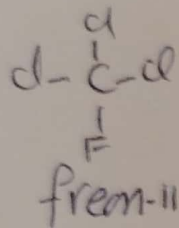 Cl
Cl-C-Cl
F
freon-11